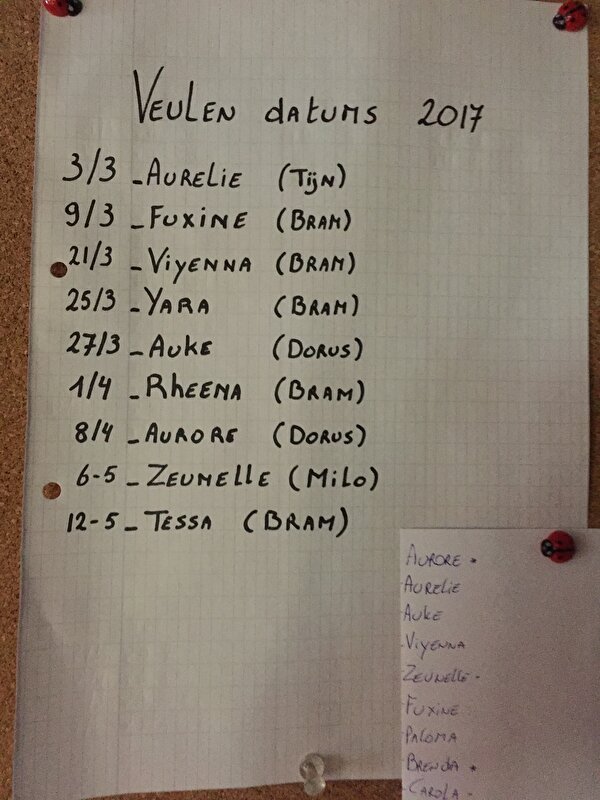 VEULEN datums 2017
3/3 - AURELIE (TIJN)
9/3 - FUXINE (BRAM)
21/3 - VIYENNA (BRAM)
25/3 - YARA (BRAM)
27/3 - AUKE (DORUS)
1/4 - RHEENA (BRAM)
8/4 - AURORE (DORUS)
6-5 - ZEUNELLE (MILO)
12-5 - TESSA (BRAM)
AURORE *
AURELIE
AUKE
VIYENNA
ZEUNELLE -
FUXINE
PALOMA
BRENDA *
CAROLA -